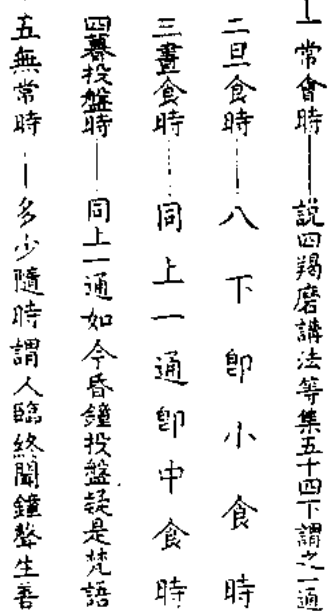 一常會時——說四羯磨講法等集五十四下謂之一通
二旦食時——八下卽小食時
三晝食時——同上一通卽中食時
四暮投盤時——同上一通如今昏鐘投盤疑是梵語
五無常時——多少隨時謂人臨終聞鐘聲生善